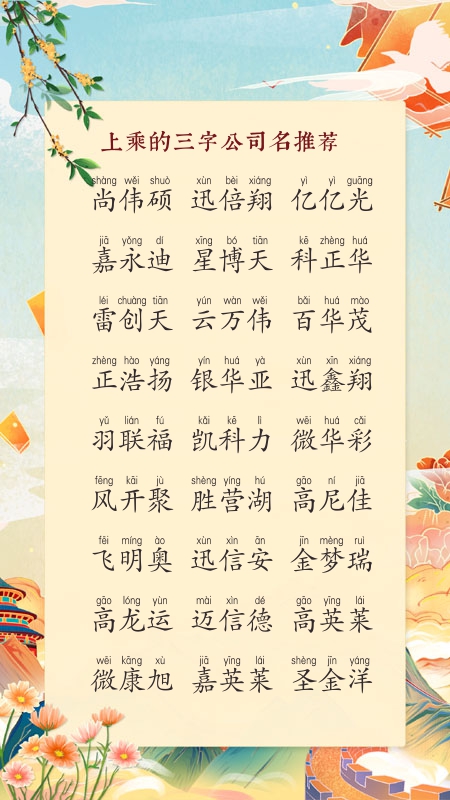 上乘的三字公司名推荐
shàng wěi shuò xùn bèi xiáng yì yì guāng
尚伟硕 迅倍翔 亿亿光
jiā yǒng dí xīng bó tiān kē zhèng huá
嘉永迪 星博天 科正华
léi chuàng tiān yún wàn wěi bǎi huá mào
雷创天 云万伟 百华茂
zhèng hào yáng yín huá yà xùn xīn xiáng
正浩扬 银华亚 迅鑫翔
yǔ lián fú kǎi kē lì wēi huá cǎi
羽联福 凯科力 微华彩
fēng kāi jù shèng yíng hú gāo ní jiā
风开聚 胜营湖 高尼佳
fēi míng ào xùn xìn ān jīn mèng ruì
飞明奥 迅信安 金梦瑞
gāo lóng yùn mài xìn dé gāo yīng lái
高龙运 迈信德 高英莱
wēi kāng xù jiā yīng lái shèng jīn yáng
微康旭 嘉英莱 圣金洋